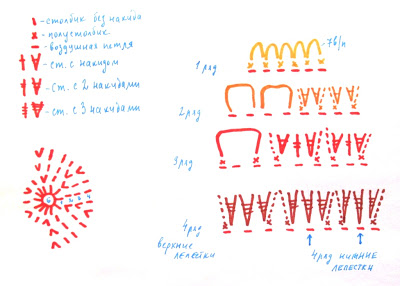 - столбик без накида
- полустолбик
- воздушная петля
- ст. с накидом
- ст. с 2 накидами
- ст. с 3 накидами
7в/п
1 ряд
2 ряд
3 ряд
4 ряд
верхние
лепестки
4 ряд нижние
лепестки
6 1 2 3 4